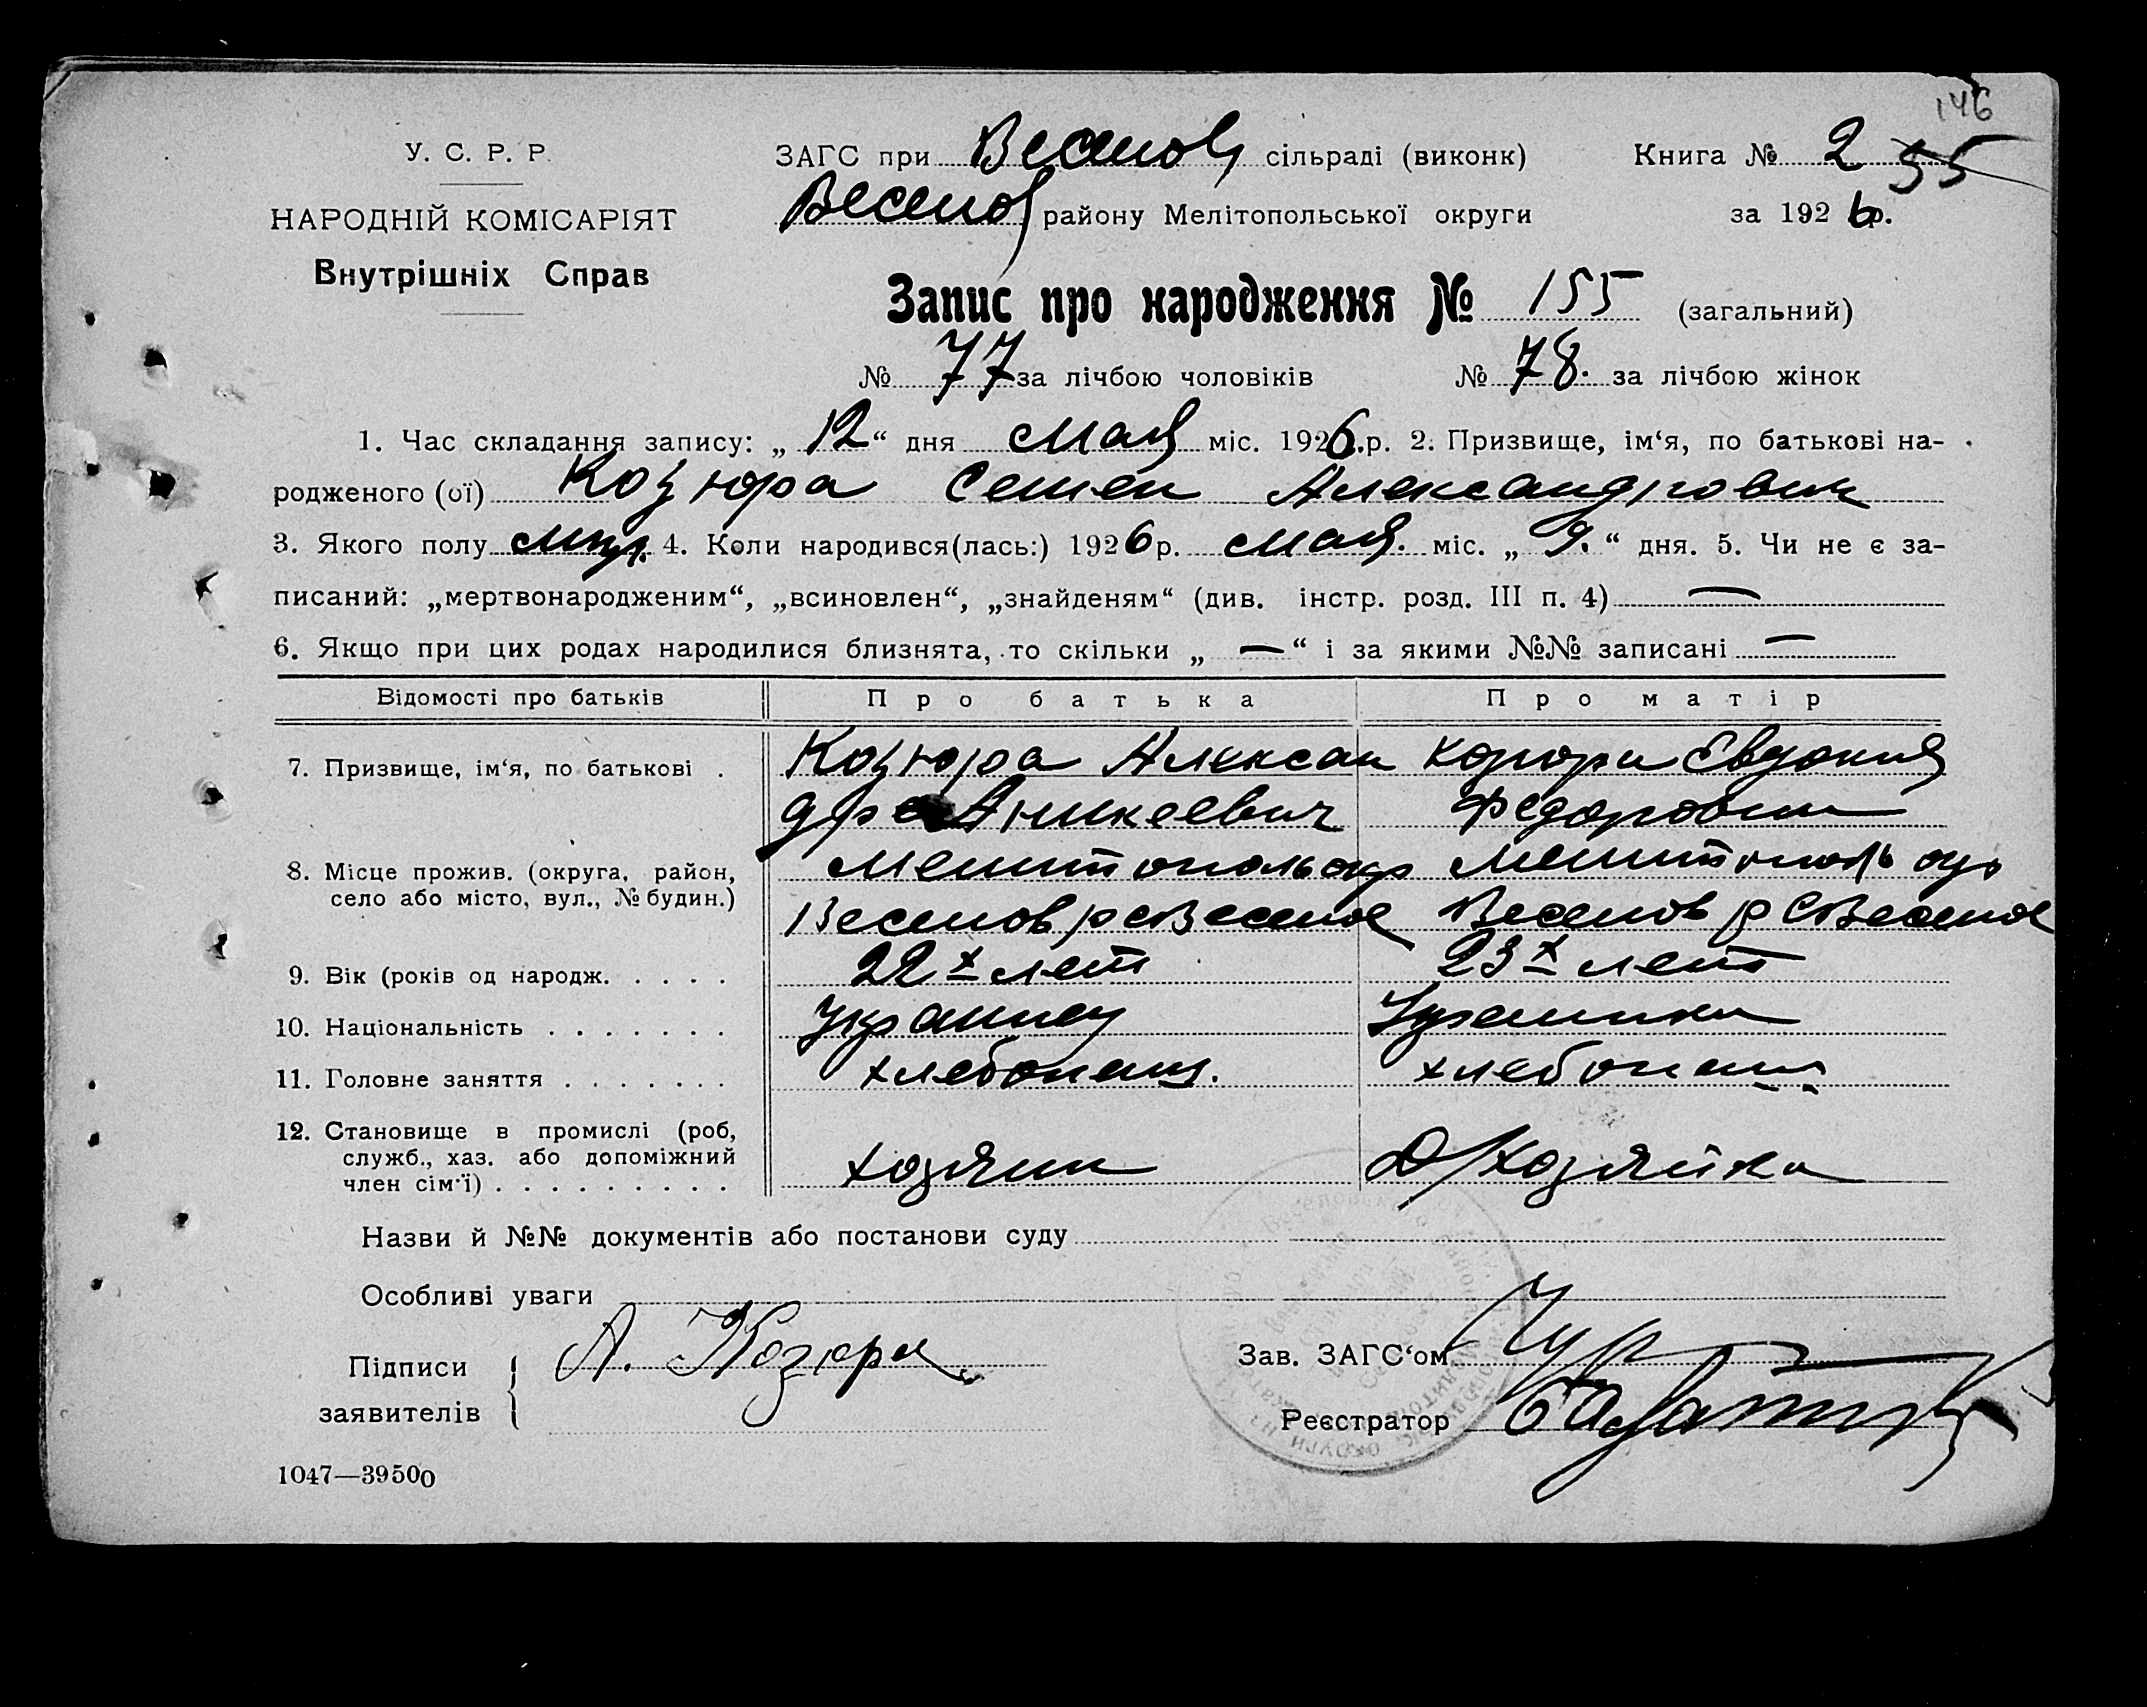 146
У. С. Р. Р.
НАРОДНІЙ КОМІСАРІЯТ
Внутрішніх Справ
ЗАГС при Веселов сільраді (виконк)
Книга № 2 55
Веселов району Мелітопольської округи
за 1926 р.
Запис про народження № 155 (загальний)
№ 77 за лічбою чоловіків № 78. за лічбою жінок
1. Час складання запису: „ 12 “ дня мая міс. 1926.р. 2. Призвище, ім‘я, по батькові на-
родженого (ої) Козюра Семен Александрович
3. Якого полу муж. 4. Коли народився(лась:) 1926 р. мая. міс. „ 9. “ дня. 5. Чи не є за-
писаний: „мертвонародженим“, „всиновлен“, „знайденям“ (див. інстр. розд. III п. 4) —
6. Якщо при цих родах народилися близнята, то скільки „ — “ і за якими №№ записані —
Відомості про батьків Про батька Про матір
7. Призвище, ім‘я, по батькові . Козюра Алексан Евдокия
дра Аникеевич Федоровна
8. Місце прожив. (округа, район, Мелитополь окр Мелитополь окр
село або місто, вул., № будин.) Веселов р с Веселое Веселов р с Веселое
9. Вік (років од народж. . . . . 22х лет 23х лет
10. Національність . . . . . . . Украинец Украинка
11. Головне заняття . . . . . . . хлебопаш. хлебопаш
12. Становище в промислі (роб,
служб., хаз. або допоміжний
член сім‘ї) . . . . . . . . . хозяин Д/хозяйка
Назви й №№ документів або постанови суду
Особливі уваги
Підписи
заявителів
А. Козюра
Зав. ЗАГС‘ом
Реєстратор
1047—39500